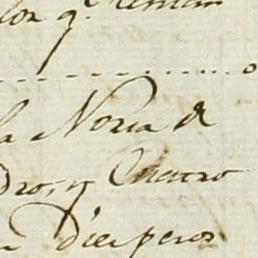 los q.e
la Noria de
dros, y Cuatro
diez pesos